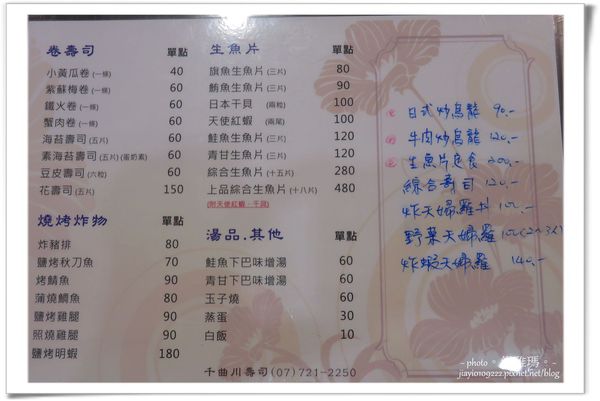 卷壽司 單點
小黃瓜卷(一條) 40
紫蘇梅卷(一條) 60
鐵火卷(一條) 60
蟹肉卷(一條) 60
海苔壽司(五片) 60
素海苔壽司(五片)(蛋奶素) 60
豆皮壽司(六粒) 60
花壽司(五片) 150
燒烤炸物 單點
炸豬排 80
鹽烤秋刀魚 70
烤鯖魚 90
蒲燒鯛魚 80
鹽烤雞腿 90
照燒雞腿 90
鹽烤明蝦 180
生魚片 單點
旗魚生魚片(三片) 80
鮪魚生魚片(三片) 90
日本干貝 (兩粒) 100
天使紅蝦 (兩尾) 100
鮭魚生魚片(三片) 120
青甘生魚片(三片) 120
綜合生魚片(十五片) 280
上品綜合生魚片(十八片) 480
(附天使紅蝦、干貝)
湯品.其他 單點
鮭魚下巴味增湯 60
青甘下巴味增湯 60
玉子燒 60
蒸蛋 30
白飯 10
日式炒烏龍 90.-
牛肉炒烏龍 120.-
生魚片定食 200.-
綜合壽司 120.-
炸天婦羅丼 100.-
野菜天婦羅 100(2~3人)
炸蝦天婦羅 140.-
千曲川壽司(07)721-2250
- photo 。 瑪。-
jiayio109222.pixnet.net/blog